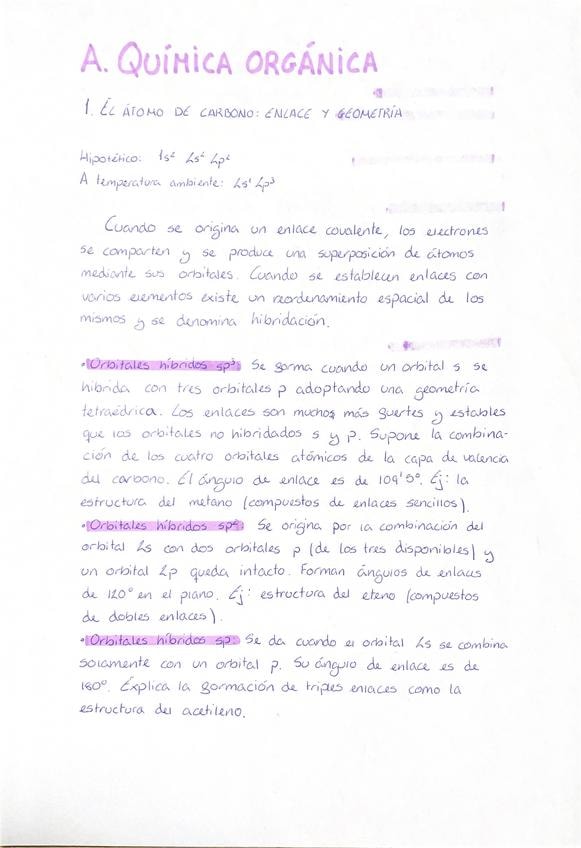 A. QUÍMICA ORGÁNICA
1. EL ÁTOMO DE CARBONO: ENLACE Y GEOMETRÍA
Hipotético: 1s² 2s² 2p²
A temperatura ambiente: 2s¹ 2p³
Cuando se origina un enlace covalente, los electrones
se comparten y se produce una superposición de átomos
mediante sus orbitales. Cuando se establecen enlaces con
varios elementos existe un reordenamiento espacial de los
mismos y se denomina hibridación.
•Orbitales híbridos sp³: Se forma cuando un orbital s se
hibrida con tres orbitales p adoptando una geometría
tetraédrica. Los enlaces son muchos más fuertes y estables
que los orbitales no hibridados s y p. Supone la combina-
ción de los cuatro orbitales atómicos de la capa de valencia
del carbono. El ángulo de enlace es de 109'5°. Ej: la
estructura del metano (compuestos de enlaces sencillos).
•Orbitales híbridos sp²: Se origina por la combinación del
orbital 2s con dos orbitales p (de los tres disponibles) y
un orbital 2p queda intacto. Forman ángulos de enlaces
de 120° en el plano. Ej: estructura del eteno (compuestos
de dobles enlaces).
•Orbitales híbridos sp: Se da cuando el orbital 2s se combina
solamente con un orbital p. Su ángulo de enlace es de
180°. Explica la formación de triples enlaces como la
estructura del acetileno.